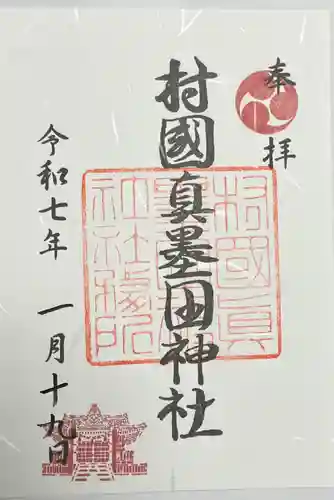 奉拝
村國真墨田神社
令和七年 一月十九日
村國真墨田神社社務所